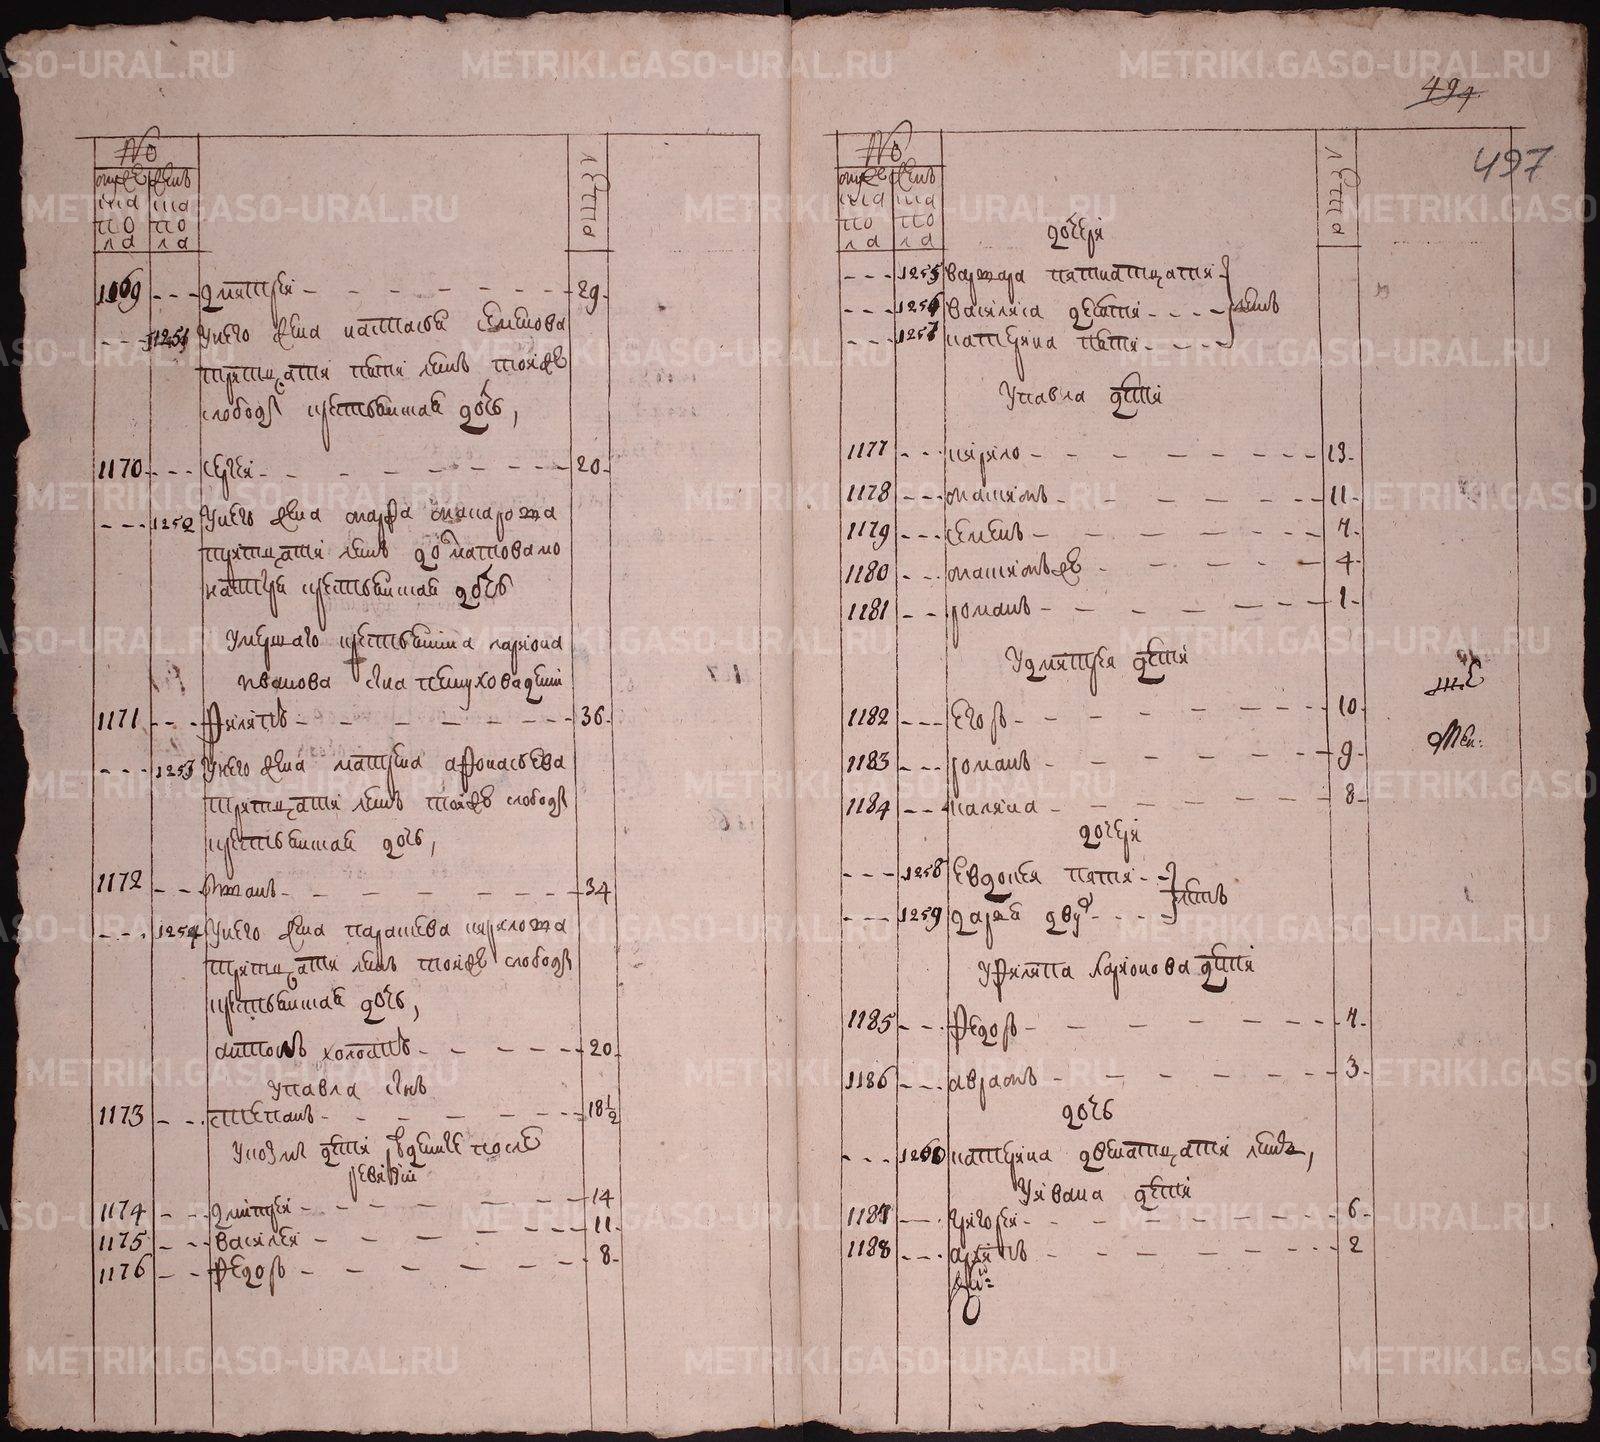 №
мужеска пола
женска пола
лета
1169 дмитреи 29
1251 Унего жена настасья семенова
тритцати пяти летъ тояже
слободы крестьянская дочь,
1170 сергеи 20
1252 Унего жена марфа макарова
тритцати летъ
крестьянская дочь
Умершаго крестьянина лариона
иванова сна петухова дети
1171 филипъ 36
1253 Унего жена матрена афонасьева
тритцати летъ тояже слободы
крестьянская дочь,
1172 иванъ 34
1254 Унего жена парасковья кирилова
тритцати летъ тояже слободы
крестьянская дочь,
антонъ холостъ 20
Упавла снъ
1173 степанъ 18 1/2
Укозмы дети рожденные после
ревизии
1174 дмитреи 14
1175 василеи 11
1176 федоръ 8
494
497
№
мужеска пола
женска пола
лета
дочери
1255 варвара пятнатцати
1256 василиса девяти
летъ
1257 катерина пяти
Упавла дети
1177 кирило 13
1178 максимъ 11
1179 семенъ 7
1180 максимъже 4
1181 романъ 1
Удмитрея дети
1182 егоръ 10
1183 романъ 9
1184 калина 8
дочери
1258 евдокея пяти
летъ
1259 дарья двухъ
Уфилипа Ларионова дети
1185 федоръ 7
1186 аврамъ 3
дочь
1260 катерина двенатцати летъ,
Уивана дети
1187 григореи 6
1188 архипъ 2